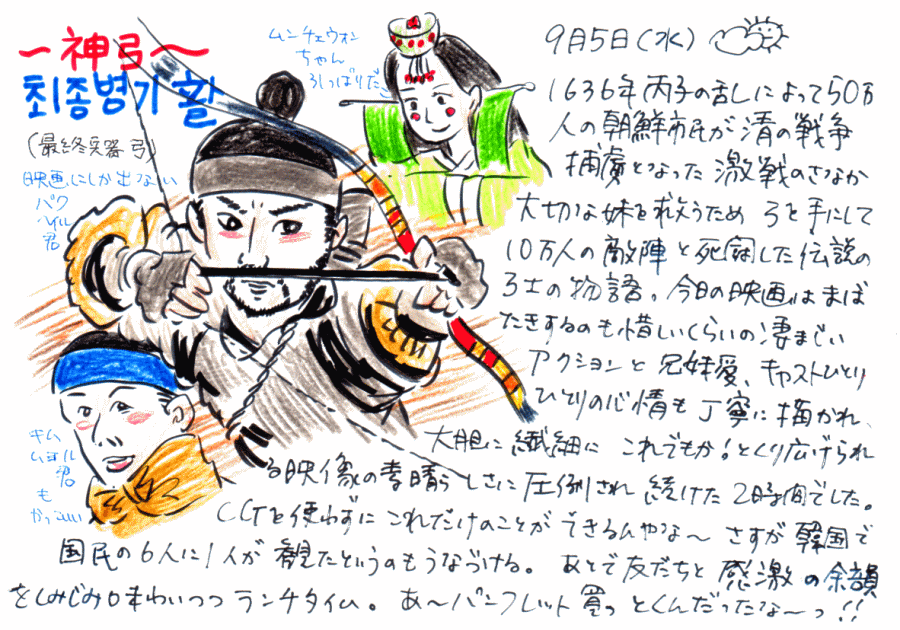 ～神弓～
최종병기 활
(最終兵器 弓)
映画にしか出ない
パク
ヘイル
君
ムンチェウォン
ちゃん
ひっぱりだこ
キム
ムヨル
君
も
かっこいい
9月5日(水)
1636年丙子の乱によって50万
人の朝鮮市民が清の戦争
捕虜となった激戦のさなか
大切な妹を救うため 弓を手にして
10万人の敵陣と死闘した伝説の
弓士の物語。今日の映画はまば
たきするのも惜しいくらいの凄まじい
アクションと兄妹愛、キャストひとり
ひとりの心情も丁寧に描かれ、
大胆に繊細に これでもか!とくり広げられ
る映像の素晴らしさに圧倒され続けた2時間でした。
CGを使わずにこれだけのことができるんやな～ さすが韓国で
国民の6人に1人が観たというのもうなづける。あとで友だちと感激の余韻
をしみじみ味わいつつランチタイム。あ～パンフレット買っとくんだったな～っ!!